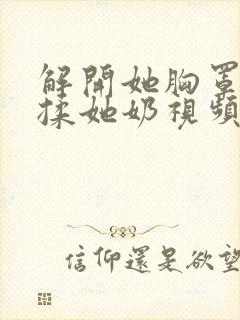 解開她胸罩
揉她奶視頻
信仰還是欲望